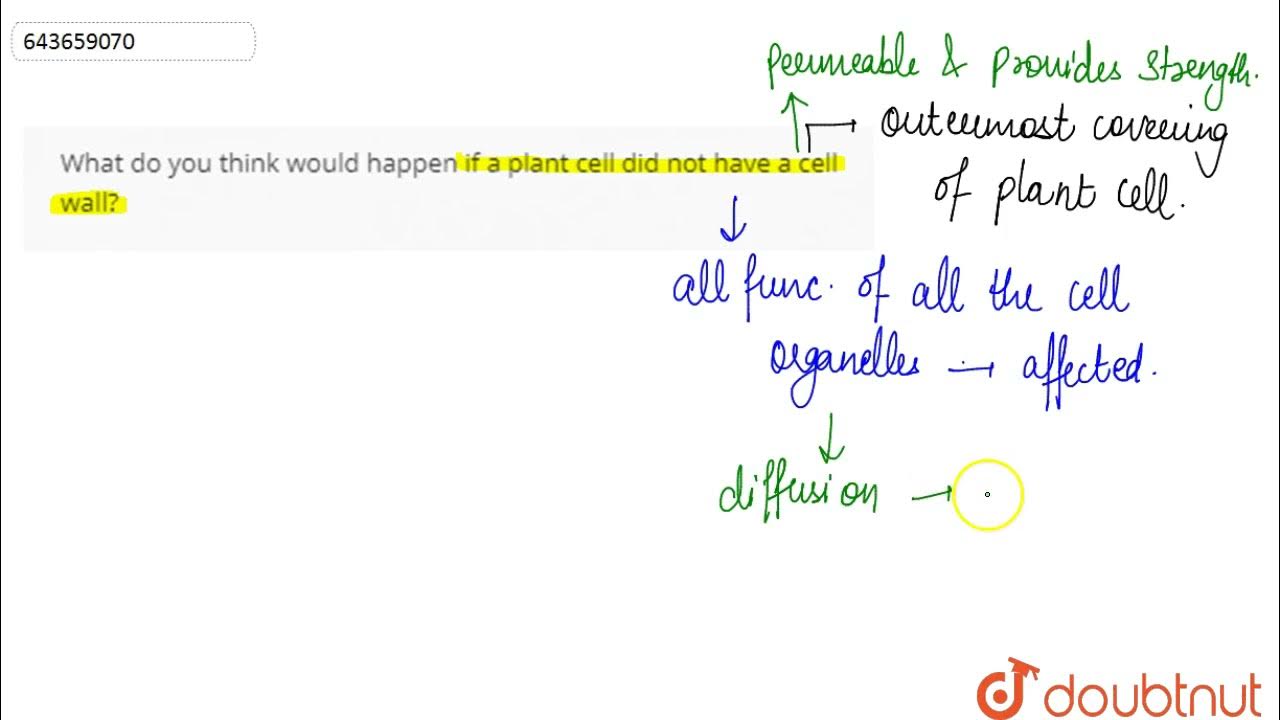 643659070
permeable & provides strength.
outermost covering
of plant cell.
What do you think would happen if a plant cell did not have a cell
wall?
all func. of all the cell
organelles → affected.
diffusion →
doubtnut